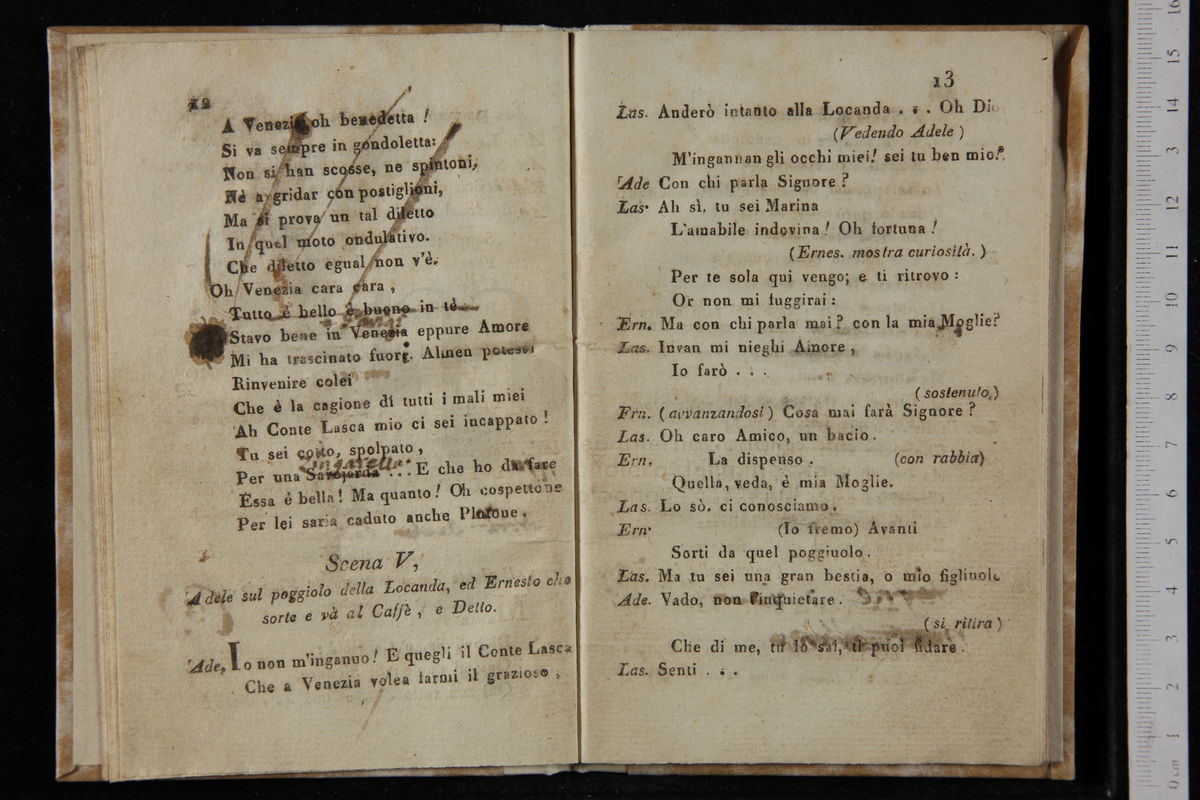 12
A Venezia oh benedetta !
Si va sempre in gondoletta:
Non si han scosse, ne spintoni,
Nè a gridar con postiglioni,
Ma si prova un tal diletto
In quel moto ondulativo.
Che diletto egual non v'è.
Oh Venezia cara cara ,
Tutto é bello è buono in tè
Stavo bene in Venezia eppure Amore
Mi ha trascinato fuori. Almen potessi
Rinvenire colei
Che è la cagione di tutti i mali miei
Ah Conte Lasca mio ci sei incappato !
Tu sei cotto, spolpato ,
Per una Savojarda ... E che ho da fare
Essa é bella! Ma quanto! Oh cospettone
Per lei saria caduto anche Platone .
Scena V,
Adele sul poggiolo della Locanda, ed Ernesto che
sorte e và al Caffè , e Detto.
Ade, Io non m'inganno! E quegli il Conte Lasca
Che a Venezia volea farmi il grazioso ,
13
Las. Anderò intanto alla Locanda . . . Oh Dio
(Vedendo Adele )
M'ingannan gli occhi miei! sei tu ben mio?
Ade Con chi parla Signore ?
Las. Ah sì, tu sei Marina
L'amabile indovina! Oh fortuna !
(Ernes. mostra curiosità. )
Per te sola qui vengo; e ti ritrovo :
Or non mi fuggirai :
Ern. Ma con chi parla mai ? con la mia Moglie?
Las. Invan mi nieghi Amore ,
Io farò . . .
( sostenuto,)
Ern. ( avvanzandosi ) Cosa mai farà Signore ?
Las. Oh caro Amico, un bacio .
Ern. La dispenso . (con rabbia)
Quella, veda, è mia Moglie.
Las. Lo sò. ci conosciamo .
Ern. (Io fremo) Avanti
Sorti da quel poggiuolo .
Las. Ma tu sei una gran bestia, o mio figliuolo
Ade. Vado, non t'inquietare .
( si ritira )
Che di me, tu lo sai, ti puoi fidare .
Las. Senti . . .